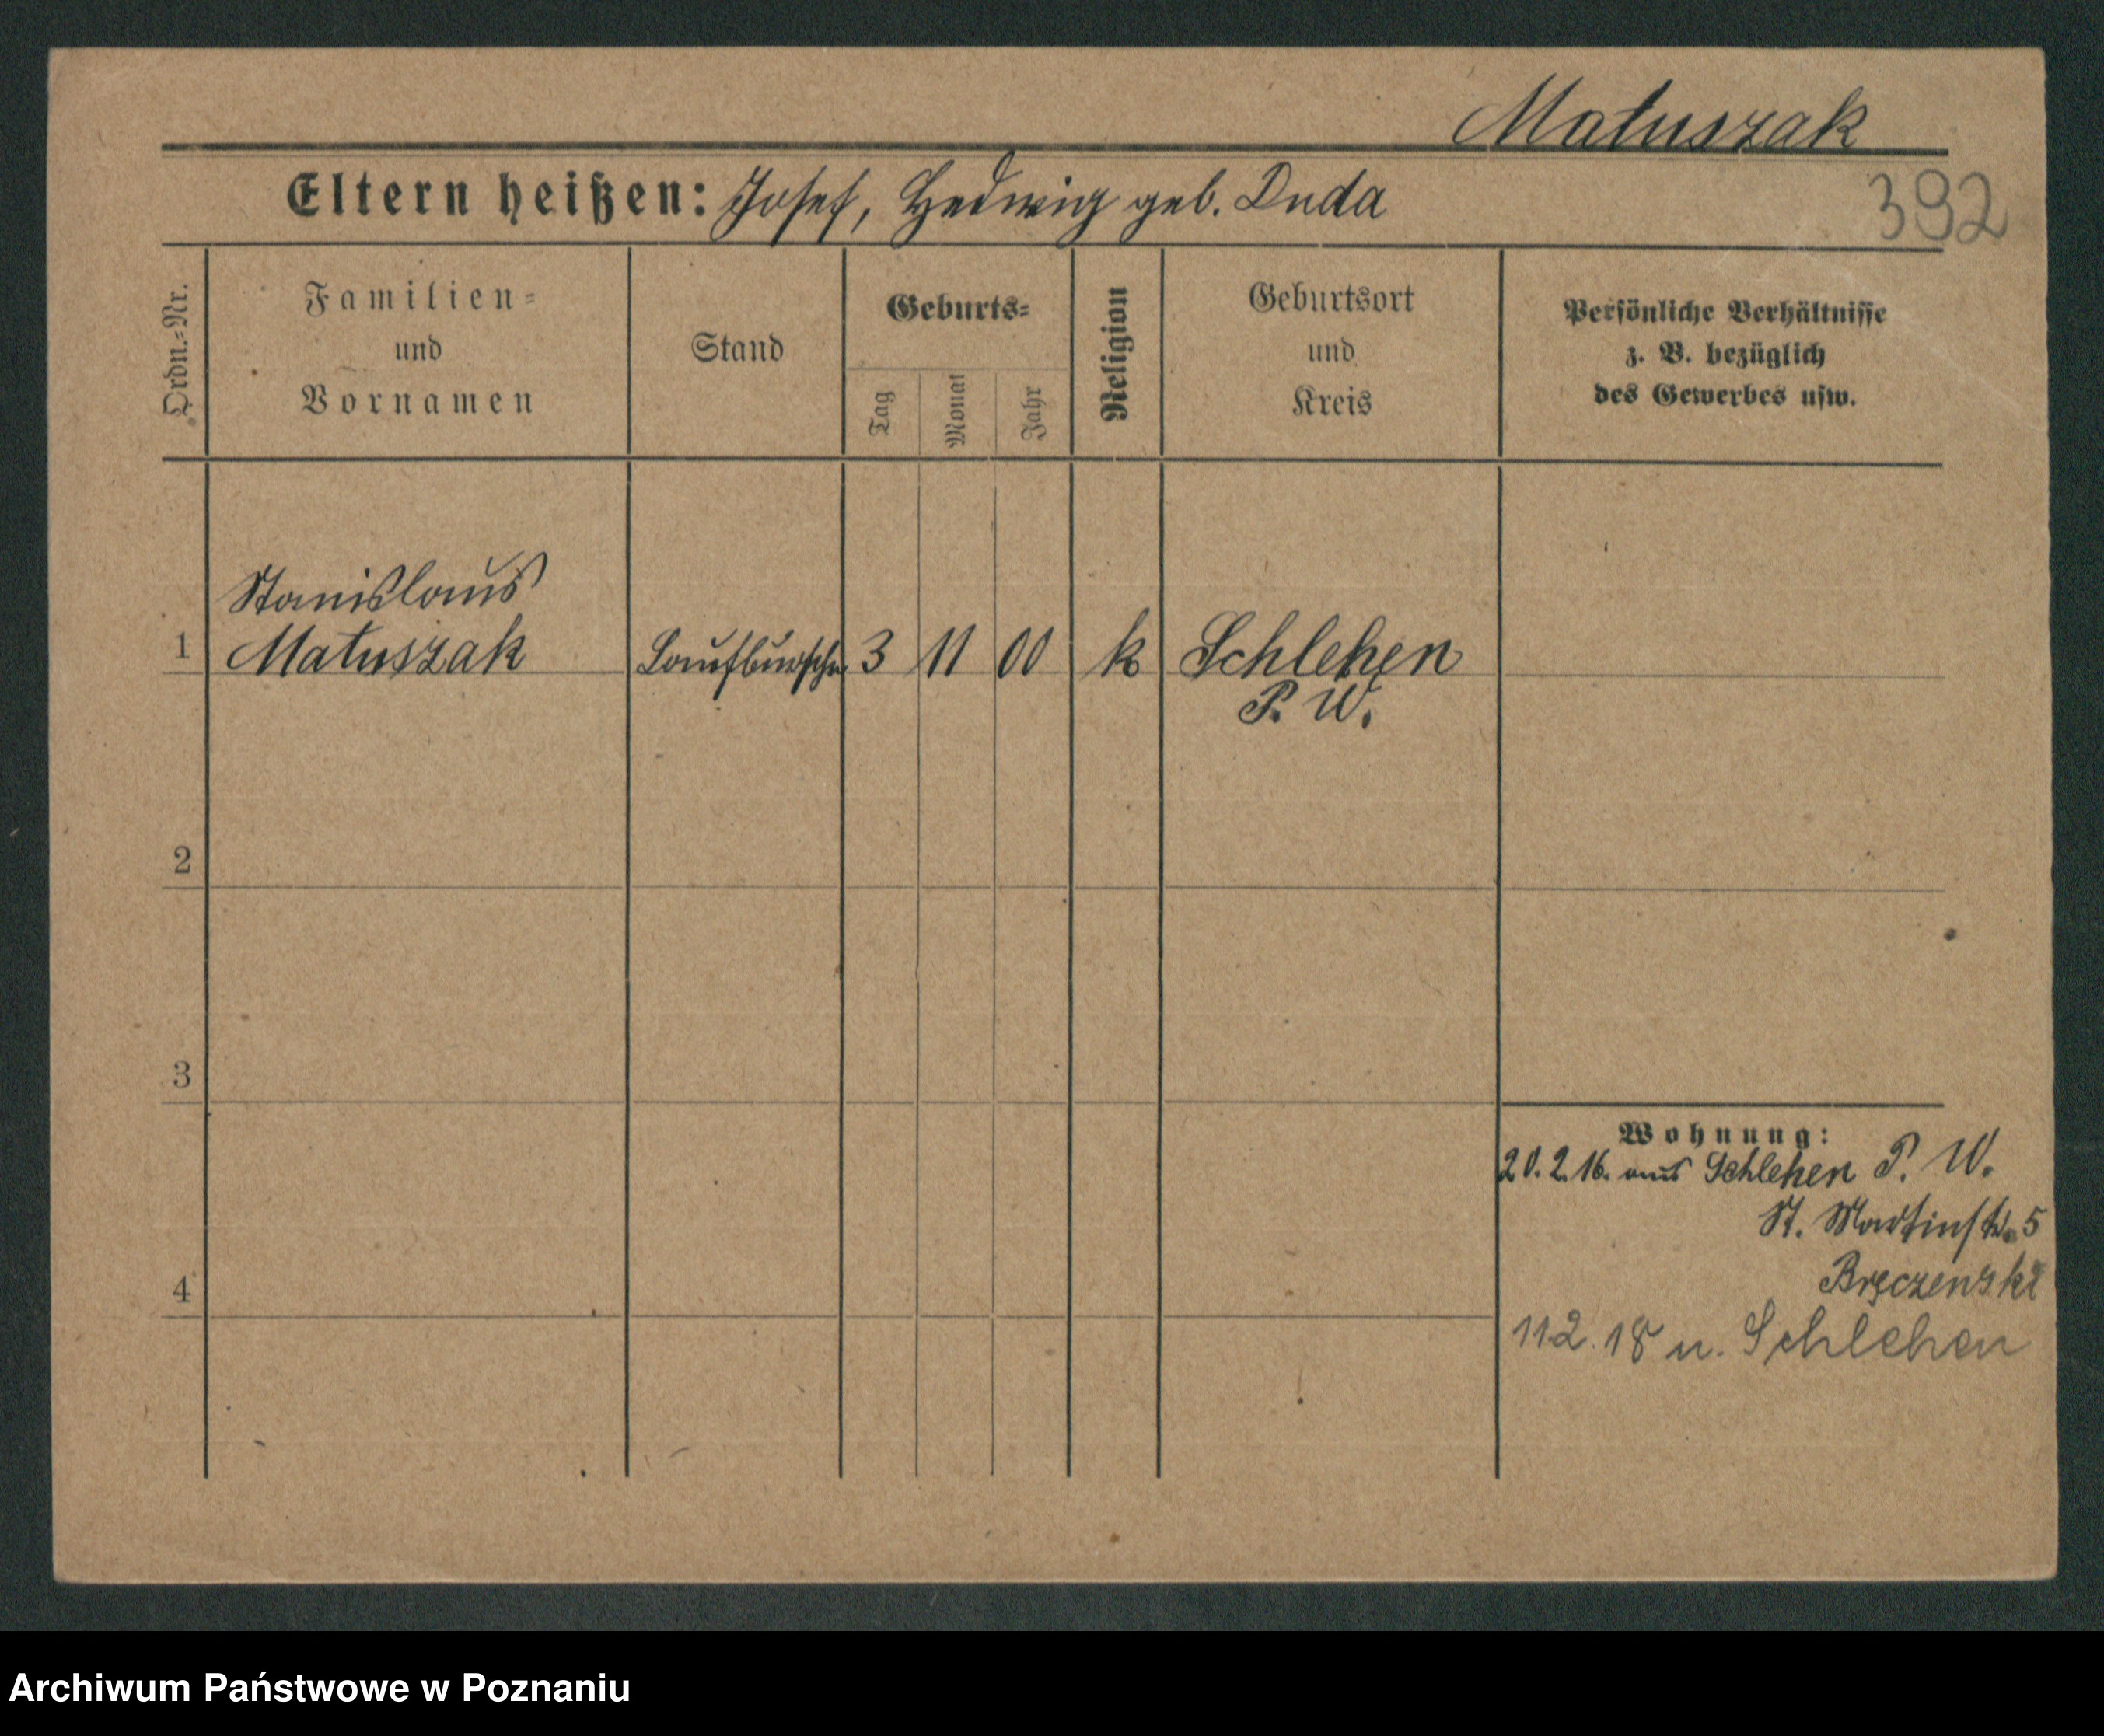 Matuszak
Eltern heißen: Josef, Hedwig geb. Duda
392
Ordn.-Nr.
Familien-
und
Vornamen
Stand
Geburts-
Tag
Monat
Jahr
Religion
Geburtsort
und
Kreis
Persönliche Verhältnisse
z. B. bezüglich
des Gewerbes usw.
Stanislaus
1 Matuszak Laufbursche 3 11 00 k Schlehen
P. W.
2
3
Wohnung:
20. 2. 16. aus Schlehen P. W.
St. Martinstr. 5
Bręczenski
4
112. 18 n. Schlehen
Archiwum Państwowe w Poznaniu